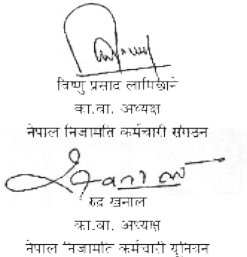 विष्णु प्रसाद लामिछाने
का.वा. अध्यक्ष
नेपाल निजामति कर्मचारी संगठन
रुद्र खनाल
का.वा. अध्यक्ष
नेपाल निजामति कर्मचारी युनियन